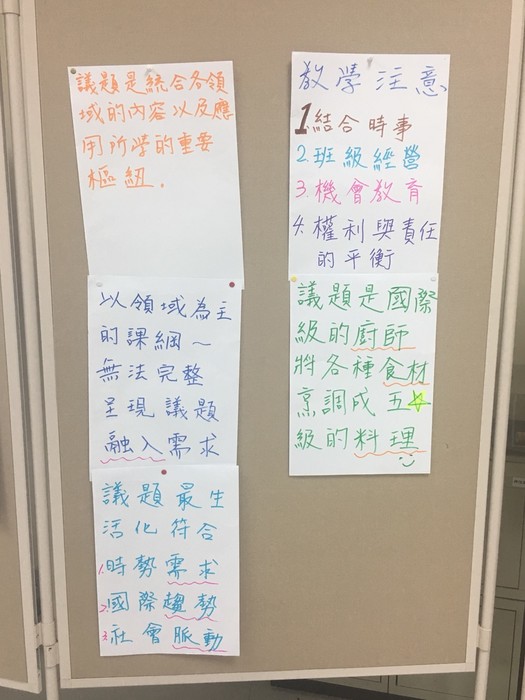 議題是統合各領
域的內容以及應
用所學的重要
樞紐.
以領域為主
的課綱~
無法完整
呈現議題
融入需求
議題最生
活化符合
1.時勢需求
2.國際趨勢
3.社會脈動
教學注意
1.結合時事
2.班級經營
3.機會教育
4.權利與責任
的平衡
議題是國際
級的廚師
將各種食材
烹調成五☆
級的料理